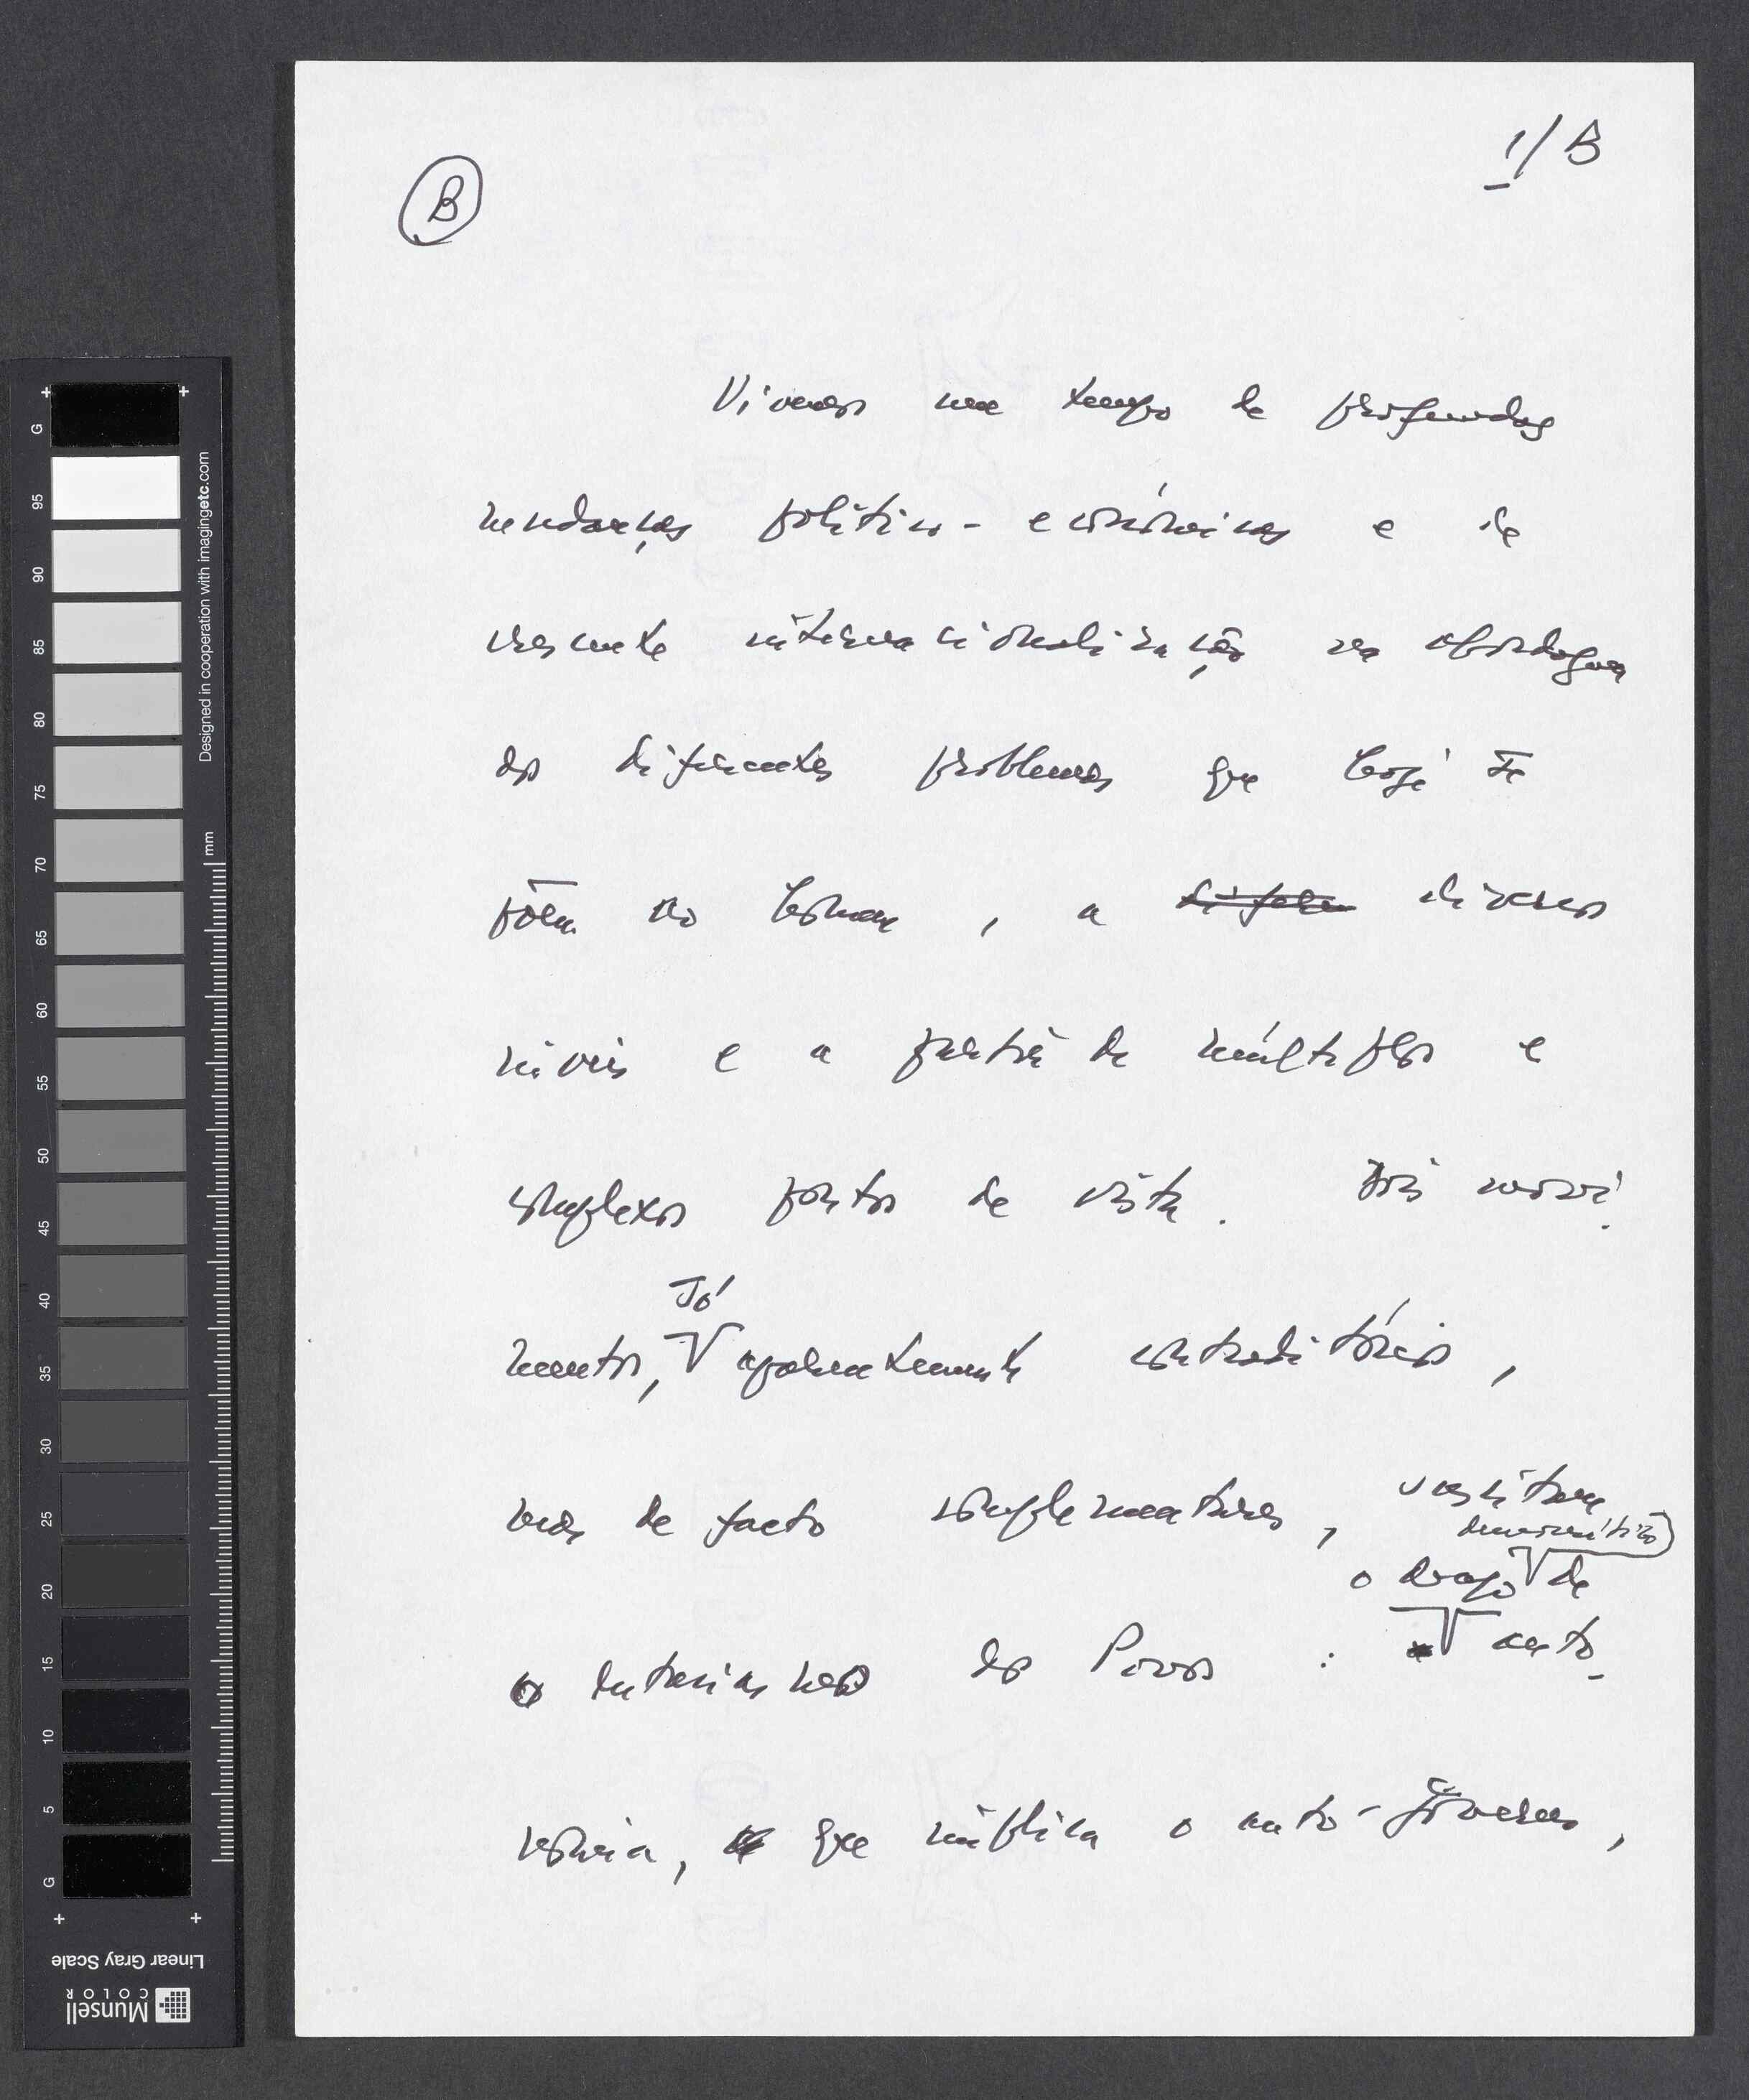 1/B
B
Vivemos num tempo de profundas
mudanças político-económicas e de
crescente internacionalização na abordagem
dos diferentes problemas que hoje se
põem ao homem, a difere diversos
níveis e a partir de múltiplos e
complexos pontos de vista. Dois movi-
mentos, só aparentemente contraditórios,
mas de facto complementares,
democrático
o desejo de
o entusiasmo dos Povos : a auto-
nomia, que implica o auto-governo,
G 95 90 85 80 75 70 65 60 55 50 45 40 35 30 25 20 15 10 5 G
Designed in cooperation with imagingetc.com
mm
Linear Gray Scale
Munsell
COLOR